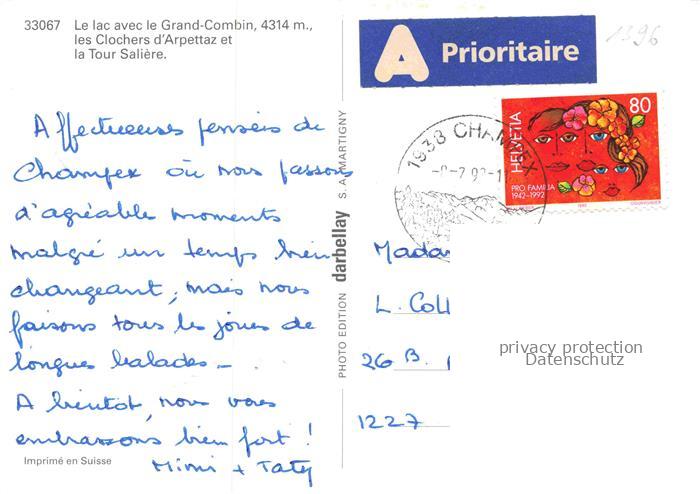 33067 Le lac avec le Grand-Combin, 4314 m.,
les Clochers d'Arpettaz et
la Tour Salière.
A Prioritaire
1396
HELVETIA
80
PRO FAMILIA
1942-1992
1938 CHAMPEX
Affectueuses pensées de
Champex où nous passons
d'agréable moments
malgré un temps bien
changeant, mais nous
faisons tous les jours de
longues balades –
A bientôt, nous vous
embrassons bien fort !
Mimi + Taty
Imprimé en Suisse
PHOTO EDITION darbellay S.A. MARTIGNY
Mada
L. Coll
26 B.
1227
privacy protection
Datenschutz